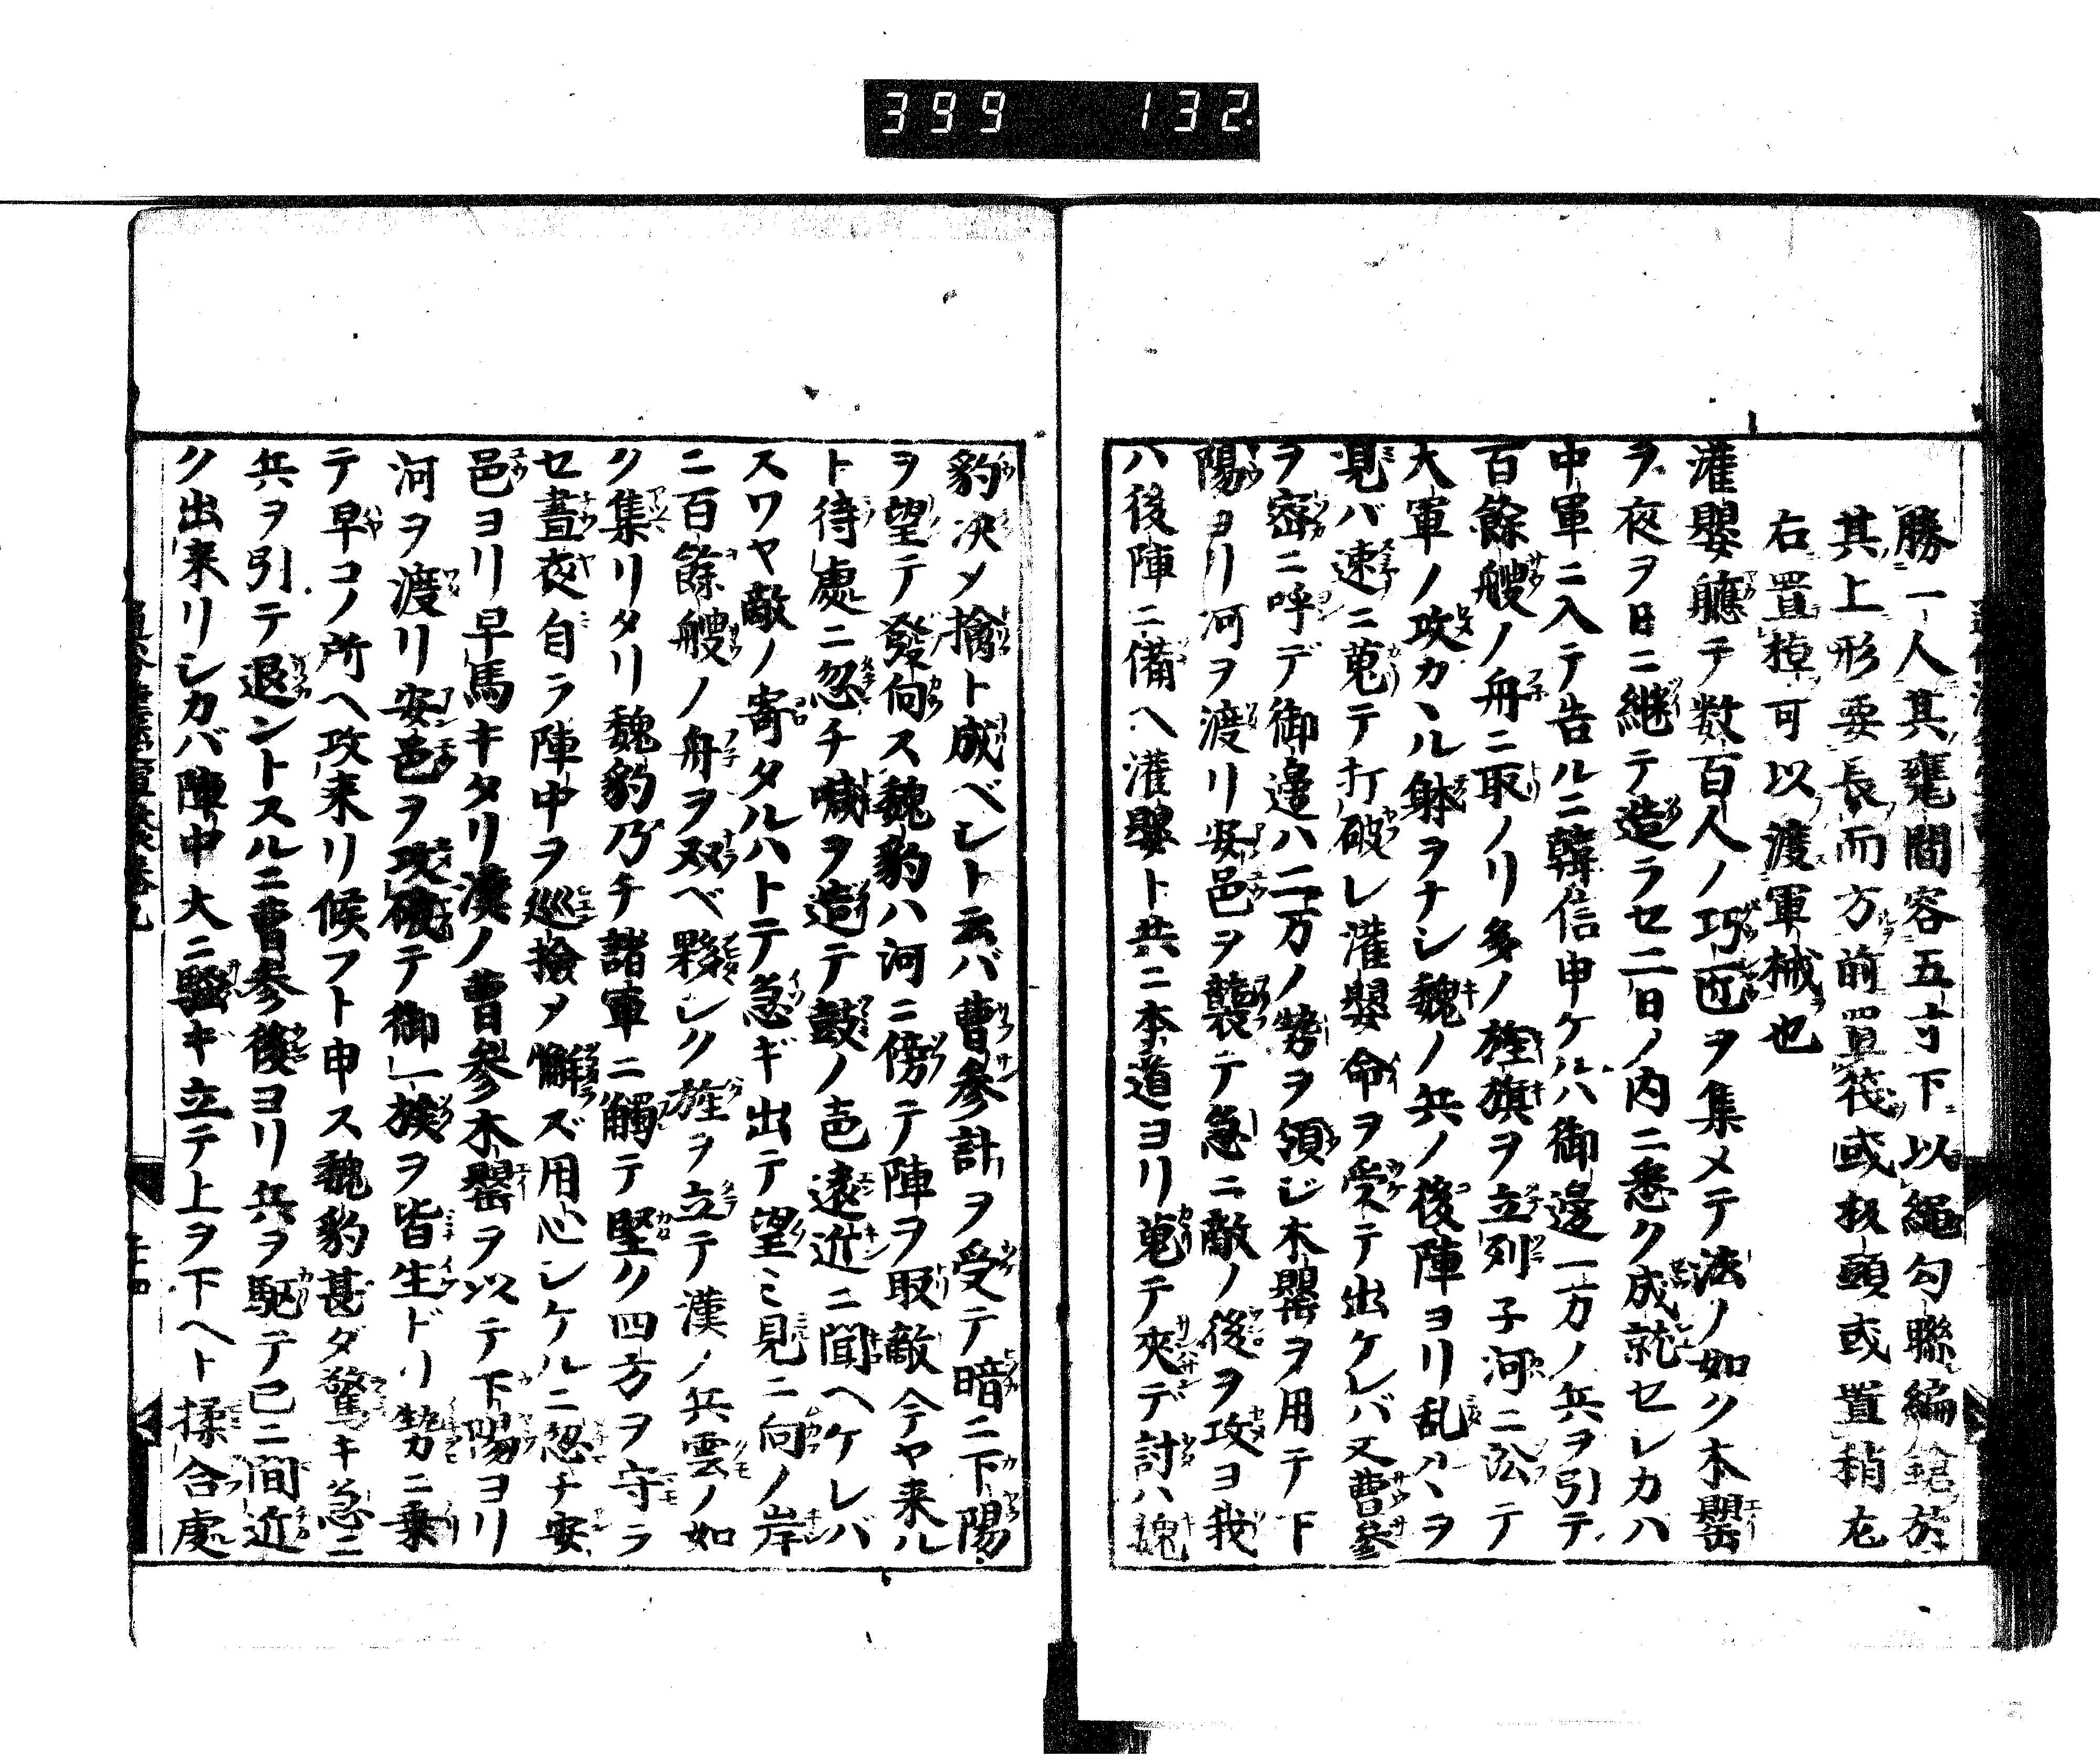 399 132
勝一人其甕間容五寸下以繩勾聯編鎗於
其上形要長而方前置筏或板頭或置稍左
右置棹可以渡軍械也
灌嬰軈テ数百人ノ巧匠ヲ集メテ法ノ如ク木罌
ヲ夜ヲ日ニ継テ造ラセ二日ノ内ニ悉ク成就セシカハ
中軍ニ入テ告ルニ韓信申ケルハ御邊一万ノ兵ヲ引テ
百餘艘ノ舟ニ取ノリ多ノ旌旗ヲ立列子河ニ泝テ
大軍ノ攻カヽル躰ヲナシ魏ノ兵ノ後陣ヨリ乱ハヽヲ
見バ速ニ蒐テ打破レ灌嬰命ヲ受テ出ケレバ又曹參
ヲ密ニ呼デ御邉ハ二万ノ勢ヲ領シ木罌ヲ用テ下
陽ヨリ河ヲ渡リ安邑ヲ襲テ急ニ敵ノ後ヲ攻ヨ我
ハ後陣ニ備ヘ灌嬰ト共ニ本道ヨリ蒐テ夾デ討ハ魏
豹决メ擒ト成ベシト云バ曹参計ヲ受テ暗ニ下陽
ヲ望テ發向ス魏豹ハ河ニ傍テ陣ヲ取敵今ヤ来ル
ト待處ニ忽チ喊ヲ造テ鼓ノ音遠近ニ聞ヘケレバ
スワヤ敵ノ寄タルハトテ急ギ出テ望ミ見ニ向ノ岸
ニ百餘艘ノ舟ヲ双ベ夥シク旌ヲ立テ漢ノ兵雲ノ如
ク集リタリ魏豹乃チ諸軍ニ觸テ堅ク四方ヲ守ラ
セ晝夜自ラ陣中ヲ巡撿メ懈ズ用心シケルニ忽チ安
邑ヨリ早馬キタリ漢ノ曹參木罌ヲ以テ下陽ヨリ
河ヲ渡リ安邑ヲ攻破テ御一族ヲ皆生ドリ勢ニ乗
テ早コノ所ヘ攻来リ候フト申ス魏豹甚ダ驚キ急ニ
兵ヲ引テ退ントスルニ曹参後ヨリ兵ヲ駈テ已ニ間近
ク出来リシカバ陣中大ニ騒ギ立テ上ヲ下ヘト揉合處